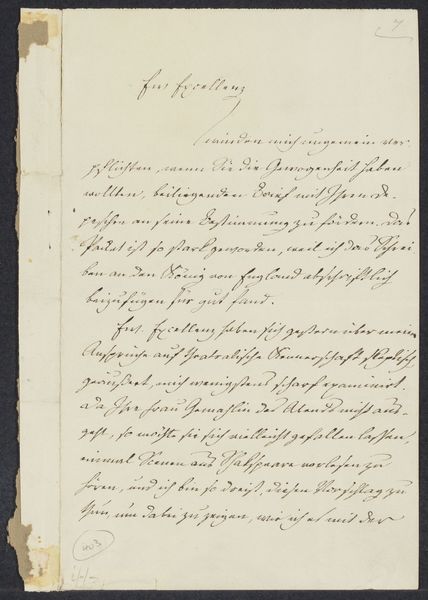 7
Ew. Excellenz
würden mich ungemein ver-
pflichten, wenn Sie die Gewogenheit haben
wollten, beiliegenden Brief mit Ihren De-
peschen an seine Bestimmung zu fördern. Das
Paket ist so stark geworden, weil ich das Schrei
ben an den König von England abschriftlich
beizufügen für gut fand.
Ew. Excellenz haben sich gestern über meine
Ansprüche auf theatralische Kennerschaft skeptisch
geäussert, mich wenigstens scharf examinirt.
Da Ihre Frau Gemahlin des Abends nicht aus-
geht, so möchte sie sich vielleicht gefallen lassen,
einmal Scenen aus Shakspeare vorlesen zu
hören, und ich bin so dreist, diesen Vorschlag zu
thun, um dabei zu zeigen, wie ich es mit der
403